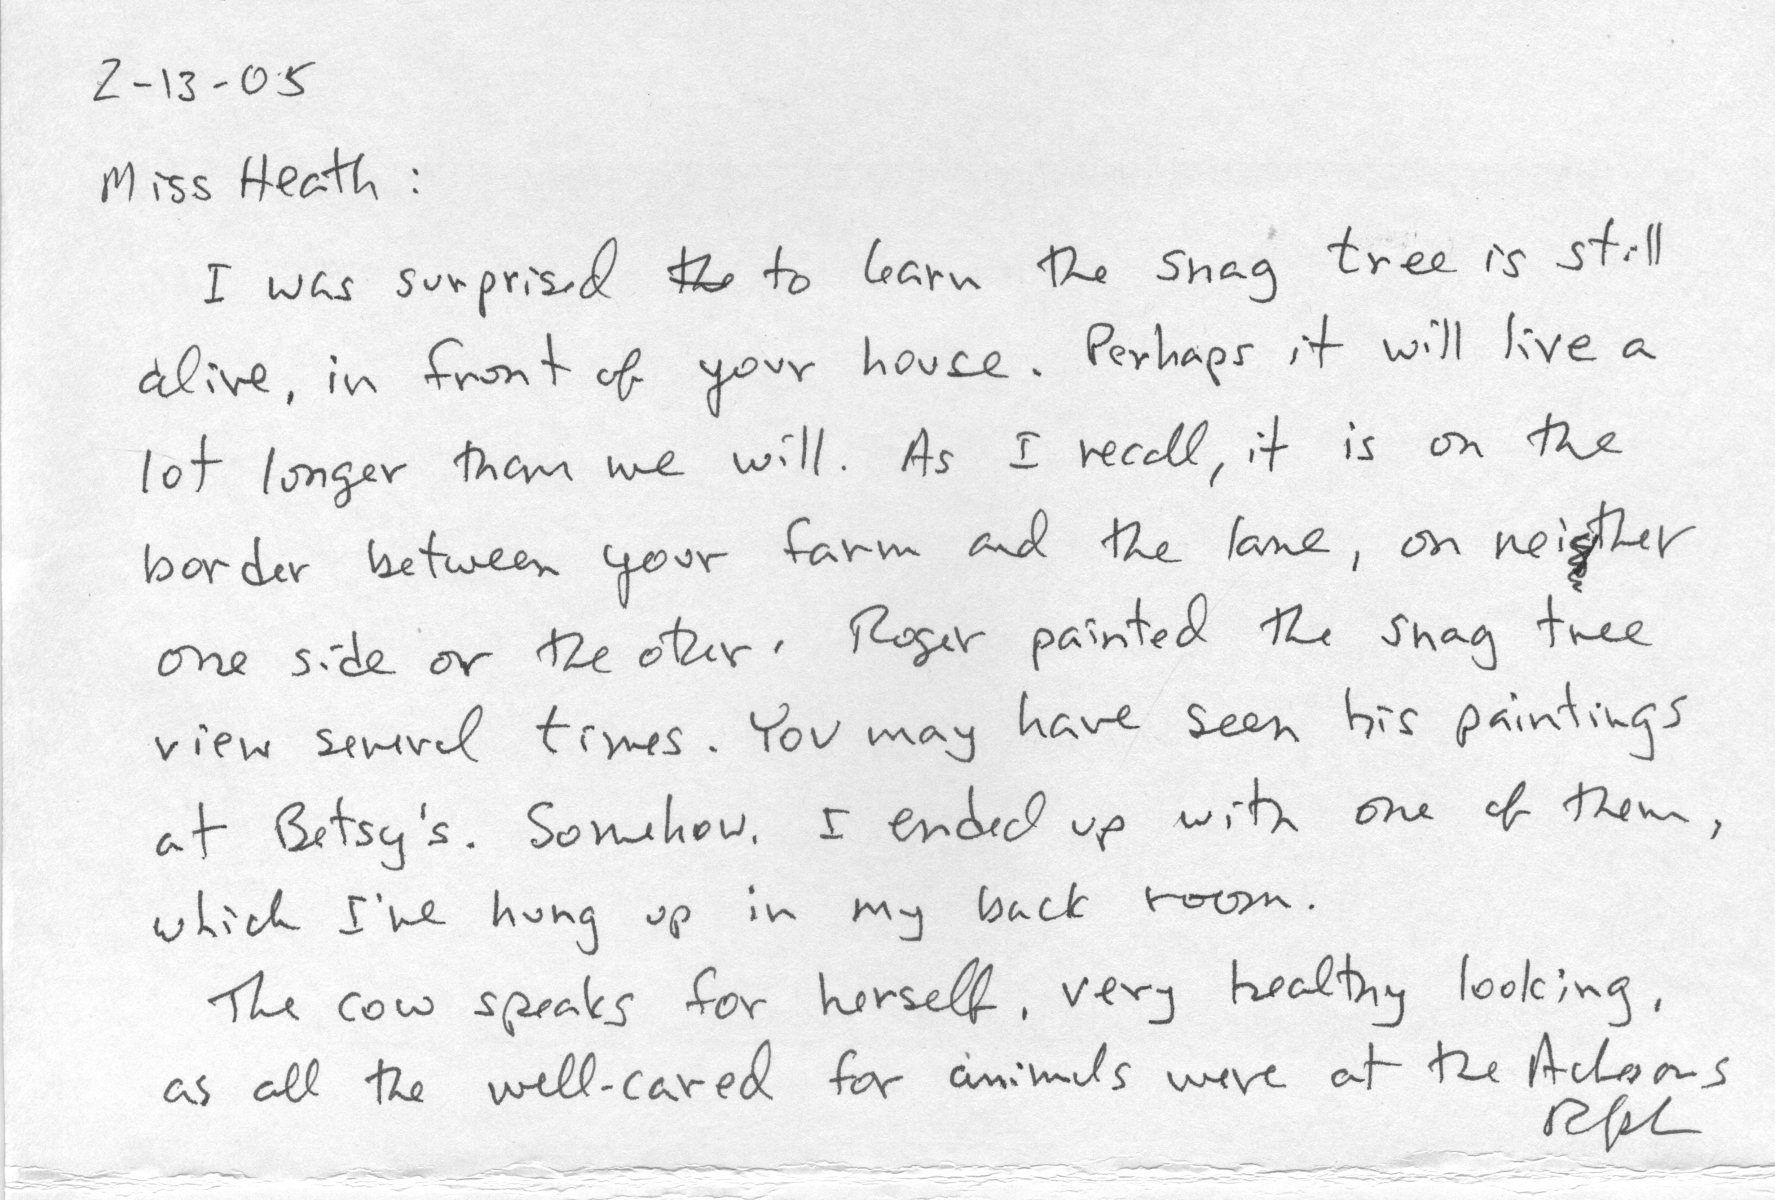 2-13-05
Miss Heath:
I was surprised the to learn the snag tree is still
alive, in front of your house. Perhaps it will live a
lot longer than we will. As I recall, it is on the
border between your farm and the lane, on neither
one side or the other. Roger painted the snag tree
view several times. You may have seen his paintings
at Betsy's. Somehow, I ended up with one of them,
which I've hung up in my back room.
The cow speaks for herself, very healthy looking,
as all the well-cared for animals were at the